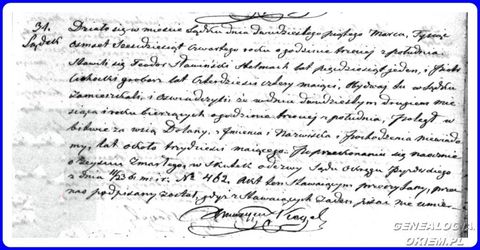 31.
Sądek
Działo się w mieście Sądku dnia dwudziestego piątego Marca, tysiąc
ośmset sześćdziesiąt czwartego roku o godzinie trzeciej z południa
Stawili się Teodor Sławiński lat pięćdziesiąt jeden,
grobarz lat czterdzieści cztery mający, obydwaj tu w Sądku
zamieszkali, i oświadczyli że w dniu dwudziestym drugim mie-
siąca i roku bieżących o godzinie trzeciej z południa, poległ w
bitwie za wsią, z Imienia, i Nazwiska, i Pochodzenia niewiado-
my, lat około trzydzieści mający. Po przekonaniu się naocznie
o zejściu Zmarłego, w skutek odezwy Sądu
z dnia No 462. Akt ten stawającym przeczytany, przez
nas podpisany został, gdyż z stawających żaden pisać nie umie.
GENEALOGIA
OKIEM.PL